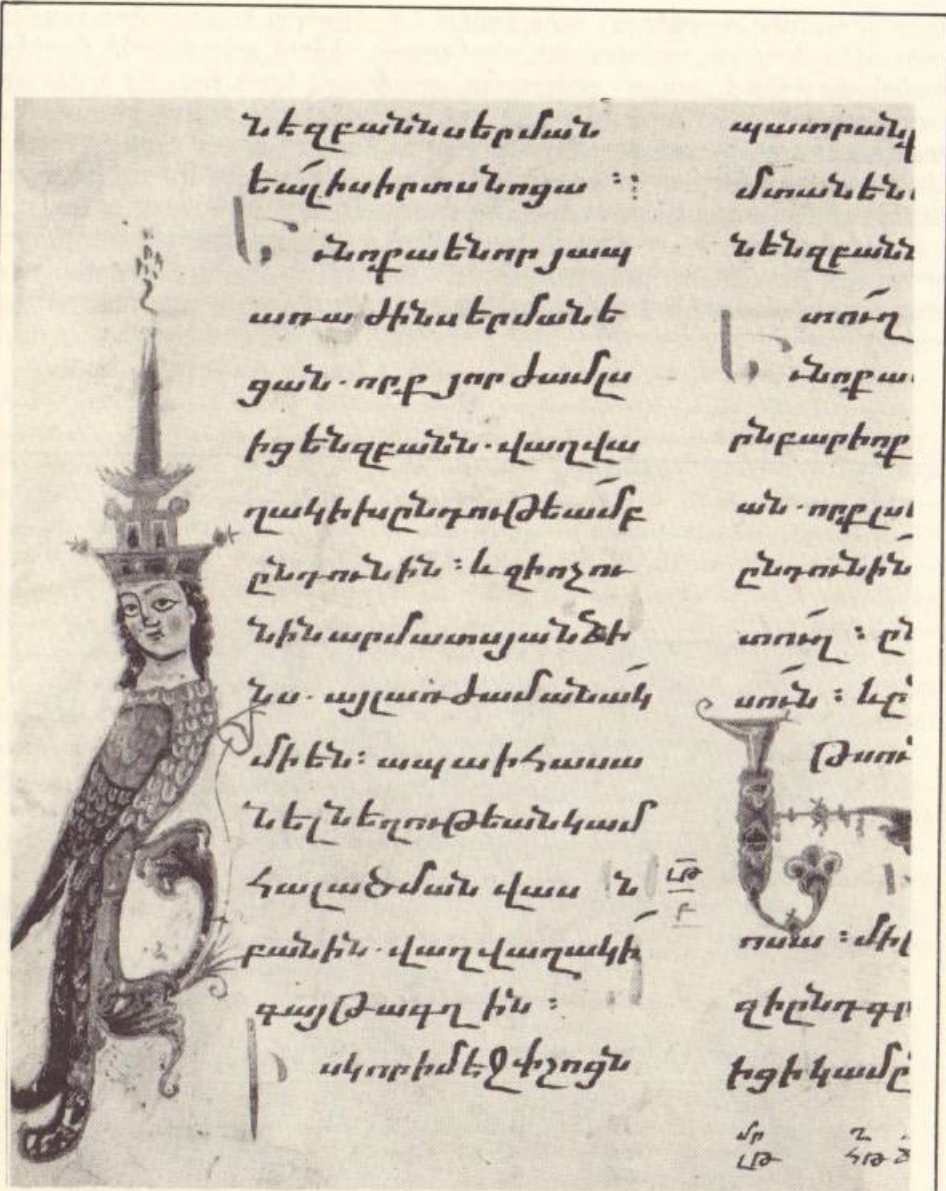 նեզբանն սերման
եալ ի սիրտս նոցա ։։
Եւ նոքա են որ յապ
առաժին սերմանե
ցան. որք յորժամ լս
իցեն զբանն. վաղվա
ղակի խընդութեամբ
ընդունին ։ և զի ոչ ու
նին արմատս յանձի
նս. այլ առ ժամանակ
մի են ։ ապա ի հասա
նել նեղութեան կամ
հալածման վասն
բանին. վաղվաղակի
գայթագղին ։
Իսկ որ ի մէջ փշոցն
լթ
բ
պատրանք
մտանեն
նեն զբանն
տուղ
Եւ նոքա
րն բարիոք
ան. որք լս
ընդունին
տուղ ։ ըն
սուն ։ և ը
թսու
ոսա ։ մի
զի ընդ գր
իցի կամ ը
մր
լթ